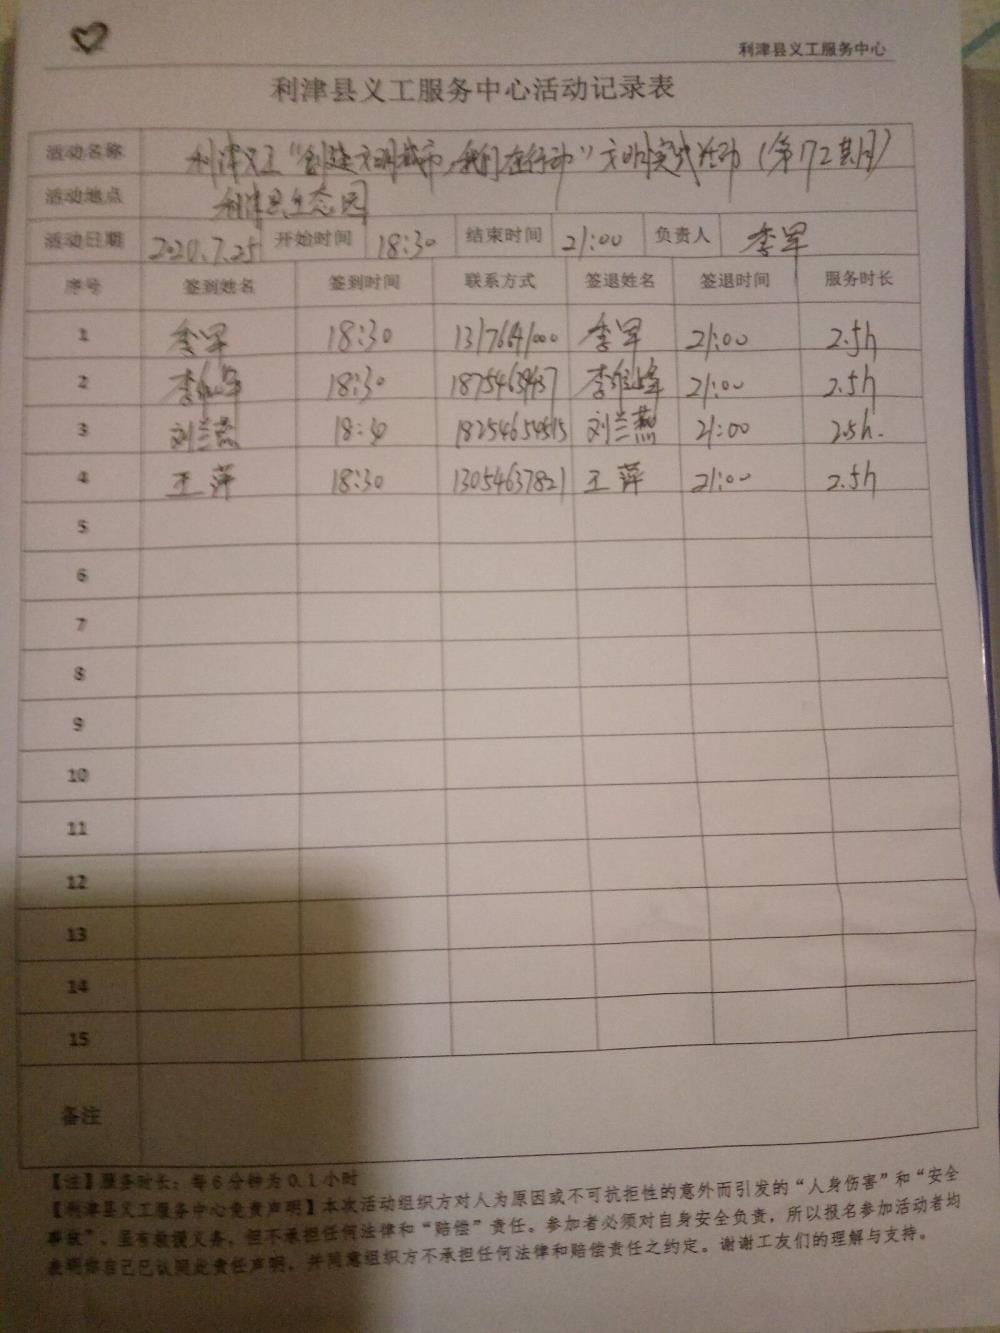 利津县义工服务中心
利津县义工服务中心活动记录表
活动名称 利津义工“创建文明城市,我们在行动”文明实践活动(第172期)
活动地点 利津县生态园
活动日期 2020.7.25 开始时间 18:30 结束时间 21:00 负责人 李军
序号 签到姓名 签到时间 联系方式 签退姓名 签退时间 服务时长
1 李军 18:30 李军 21:00 2.5h
2 18:30 21:00 2.5h
3 刘兰燕 18:30 刘兰燕 21:00 2.5h.
4 王萍 18:30 13054637821 王萍 21:00 2.5h
5
6
7
8
9
10
11
12
13
14
15
备注
【注】服务时长:每6分钟为0.1小时
【利津县义工服务中心免责声明】本次活动组织方对人为原因或不可抗拒性的意外而引发的“人身伤害”和“安全
事故”,虽有救援义务,但不承担任何法律和“赔偿”责任。参加者必须对自身安全负责,所以报名参加活动者均
表明你自己已认同此责任声明,并同意组织方不承担任何法律和赔偿责任之约定。谢谢工友们的理解与支持。